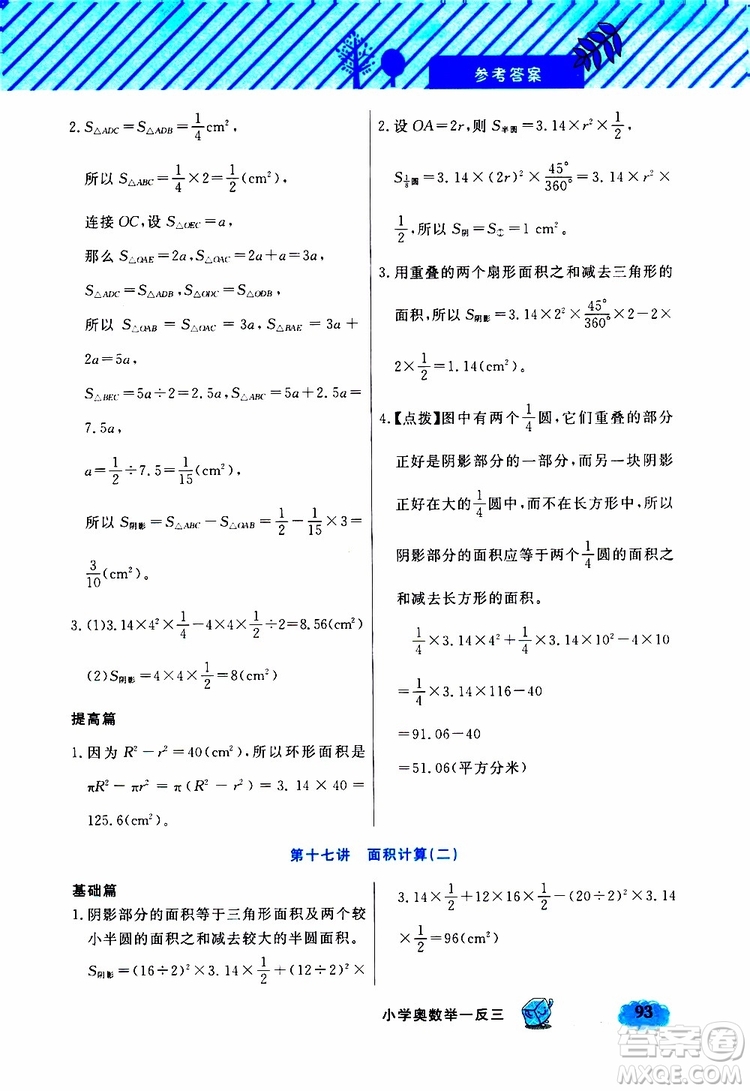 参考答案
2. S△ADC=S△ADB=1/4cm²,
所以 S△ABC=1/4×2=1/2(cm²),
连接 OC,设 S△OEC=a,
那么 S△OAE=2a,S△OAC=2a+a=3a,
S△ADC=S△ADB,S△ODC=S△ODB,
所以 S△OAB=S△OAC=3a,S△BAE=3a+
2a=5a,
S△BEC=5a÷2=2.5a,S△ABC=5a+2.5a=
7.5a,
a=1/2÷7.5=1/15(cm²),
所以 S阴影=S△ABC-S△OAB=1/2-1/15×3=
3/10(cm²)。
3. (1)3.14×4²×1/4-4×4×1/2÷2=8.56(cm²)
(2)S阴影=4×4×1/2=8(cm²)
提高篇
1. 因为 R²-r²=40(cm²),所以环形面积是
πR²-πr²=π(R²-r²)=3.14×40=
125.6(cm²)。
2. 设 OA=2r,则 S半圆=3.14×r²×1/2,
S1/8圆=3.14×(2r)²×45°/360°=3.14×r²×
1/2,所以 S阴=S工=1 cm²。
3. 用重叠的两个扇形面积之和减去三角形的
面积,所以 S阴影=3.14×2²×45°/360°×2-2×
2×1/2=1.14(cm²)
4.【点拨】图中有两个1/4圆,它们重叠的部分
正好是阴影部分的一部分,而另一块阴影
正好在大的1/4圆中,而不在长方形中,所以
阴影部分的面积应等于两个1/4圆的面积之
和减去长方形的面积。
1/4×3.14×4²+1/4×3.14×10²-10×4
=1/4×3.14×116-40
=91.06-40
=51.06(平方分米)
第十七讲 面积计算(二)
基础篇
1. 阴影部分的面积等于三角形面积及两个较
小半圆的面积之和减去较大的半圆面积。
S阴影=(16÷2)²×3.14×1/2+(12÷2)²×
3.14×1/2+12×16×1/2-(20÷2)²×3.14
×1/2=96(cm²)
小学奥数举一反三
93
答案圈
MXQE.COM